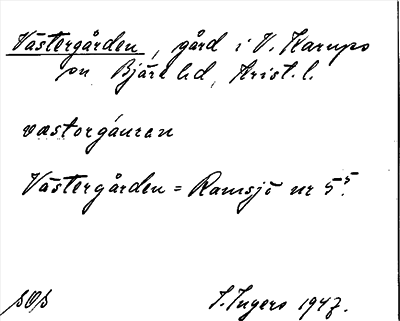 Västergården, gård i V. Karups
sn Bjäre hd, Krist. l.
væstorgáuran
Västergården = Ramsjö nr 5⁵.
SOS I. Ingers 1947.